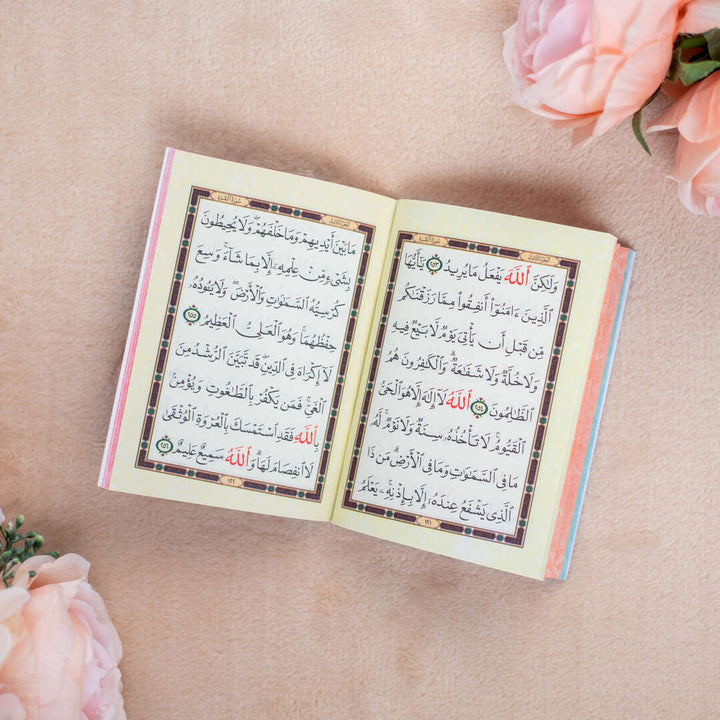 وَلَٰكِنَّ ٱللَّهَ يَفْعَلُ مَا يُرِيدُ ۝٢٥٣ يَٰٓأَيُّهَا
ٱلَّذِينَ ءَامَنُوٓا۟ أَنفِقُوا۟ مِمَّا رَزَقْنَٰكُم
مِّن قَبْلِ أَن يَأْتِىَ يَوْمٌ لَّا بَيْعٌ فِيهِ
وَلَا خُلَّةٌ وَلَا شَفَٰعَةٌ ۗ وَٱلْكَٰفِرُونَ هُمُ
ٱلظَّٰلِمُونَ ۝٢٥٤ ٱللَّهُ لَآ إِلَٰهَ إِلَّا هُوَ ٱلْحَىُّ
ٱلْقَيُّومُ ۚ لَا تَأْخُذُهُۥ سِنَةٌ وَلَا نَوْمٌ ۚ لَّهُۥ
مَا فِى ٱلسَّمَٰوَٰتِ وَمَا فِى ٱلْأَرْضِ ۗ مَن ذَا
ٱلَّذِى يَشْفَعُ عِندَهُۥٓ إِلَّا بِإِذْنِهِۦ ۚ يَعْلَمُ
مَا بَيْنَ أَيْدِيهِمْ وَمَا خَلْفَهُمْ ۖ وَلَا يُحِيطُونَ
بِشَىْءٍ مِّنْ عِلْمِهِۦٓ إِلَّا بِمَا شَآءَ ۚ وَسِعَ
كُرْسِيُّهُ ٱلسَّمَٰوَٰتِ وَٱلْأَرْضَ ۖ وَلَا يَـُٔودُهُۥ
حِفْظُهُمَا ۚ وَهُوَ ٱلْعَلِىُّ ٱلْعَظِيمُ ۝٢٥٥
لَآ إِكْرَاهَ فِى ٱلدِّينِ ۖ قَد تَّبَيَّنَ ٱلرُّشْدُ مِنَ
ٱلْغَىِّ ۚ فَمَن يَكْفُرْ بِٱلطَّٰغُوتِ وَيُؤْمِنۢ
بِٱللَّهِ فَقَدِ ٱسْتَمْسَكَ بِٱلْعُرْوَةِ ٱلْوُثْقَىٰ
لَا ٱنفِصَامَ لَهَا ۗ وَٱللَّهُ سَمِيعٌ عَلِيمٌ ۝٢٥٦